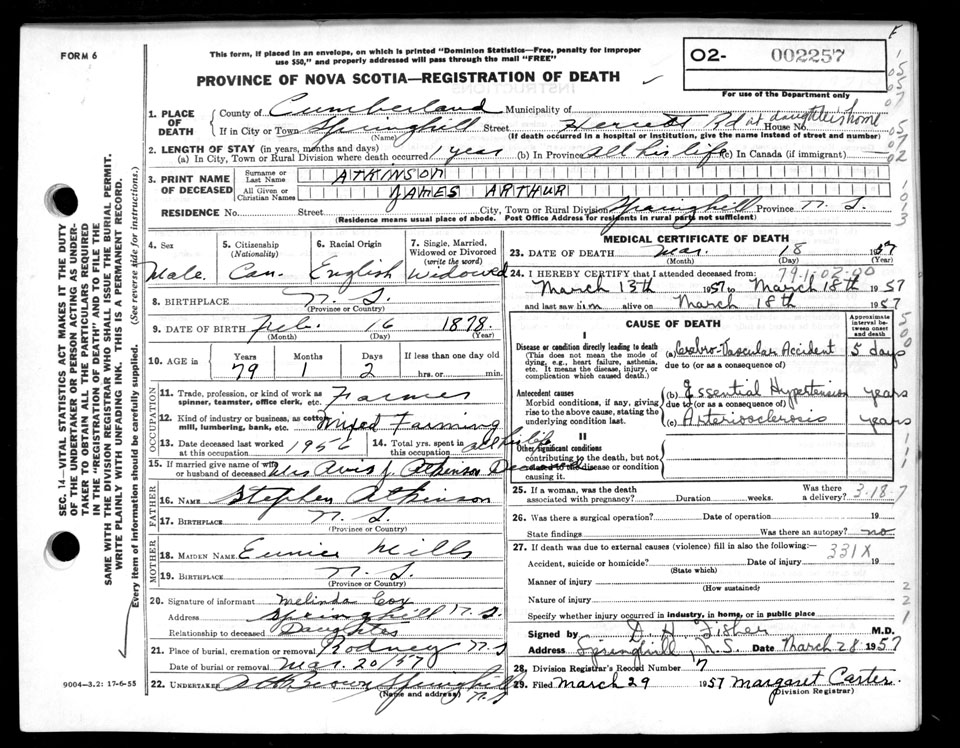 FORM 6
This form, if placed in an envelope, on which is printed "Dominion Statistics—Free, penalty for improper
use $50," and properly addressed will pass through the mail "FREE"
PROVINCE OF NOVA SCOTIA—REGISTRATION OF DEATH
O2- 002257
For use of the Department only
1. PLACE OF DEATH
County of Cumberland Municipality of
If in City or Town Springhill Street Rd at daughter's home House No.
(Name) (If death occurred in a hospital or institution, give the name instead of street and number)
2. LENGTH OF STAY (in years, months and days)
(a) In City, Town or Rural Division where death occurred 1 year (b) In Province all his life (c) In Canada (if immigrant) —
3. PRINT NAME OF DECEASED
Surname or Last Name ATKINSON
All Given or Christian Names JAMES ARTHUR
RESIDENCE No. Street City, Town or Rural Division Springhill Province N. S.
(Residence means usual place of abode. Post Office Address for residents in rural parts not sufficient)
4. Sex Male
5. Citizenship (Nationality) Can.
6. Racial Origin English
7. Single, Married, Widowed or Divorced (write the word) Widowed
8. BIRTHPLACE N. S.
(Province or Country)
9. DATE OF BIRTH Feb. 16 1878
(Month) (Day) (Year)
10. AGE in Years 79 Months 1 Days 2 If less than one day old hrs. or min.
OCCUPATION
11. Trade, profession, or kind of work as spinner, teamster, office clerk, etc. Farmer
12. Kind of industry or business, as cotton mill, lumbering, bank, etc. Mixed Farming
13. Date deceased last worked at this occupation 1956
14. Total yrs. spent in this occupation all his life
15. If married give name of wife or husband of deceased Mrs Avis J. Atkinson Deceased
FATHER
16. NAME Stephen Atkinson
17. BIRTHPLACE N. S.
(Province or Country)
MOTHER
18. MAIDEN NAME Eunice Mills
19. BIRTHPLACE N. S.
(Province or Country)
20. Signature of informant Melinda Cox
Address Springhill N. S.
Relationship to deceased Daughter
21. Place of burial, cremation or removal Rodney N S
Date of burial or removal Mar. 20/57
22. UNDERTAKER Brown Springhill N S
(Name and address)
MEDICAL CERTIFICATE OF DEATH
23. DATE OF DEATH Mar. 18 1957
(Month) (Day) (Year)
24. I HEREBY CERTIFY that I attended deceased from: 79-1-02-00
March 13th 1957 to March 18th 1957
and last saw him alive on March 18th 1957
CAUSE OF DEATH
Approximate interval between onset and death
I
Disease or condition directly leading to death
(This does not mean the mode of dying, e.g., heart failure, asthenia, etc. It means the disease, injury, or complication which caused death.)
(a) Cerebro-Vascular Accident 5 days
due to (or as a consequence of)
Antecedent causes
Morbid conditions, if any, giving rise to the above cause, stating the underlying condition last.
(b) Essential Hypertension years
due to (or as a consequence of)
(c) Arteriosclerosis years
II
Other significant conditions
contributing to the death, but not related to the disease or condition causing it.
25. If a woman, was the death associated with pregnancy? Duration weeks. Was there a delivery? 3-18-7
26. Was there a surgical operation? Date of operation 19
State findings Was there an autopsy? no
27. If death was due to external causes (violence) fill in also the following:— 331X
Accident, suicide or homicide? Date of injury 19
(State which)
Manner of injury
(How sustained)
Nature of injury
Specify whether injury occurred in industry, in home, or in public place
Signed by G. H. Fisher M.D.
Address Springhill, N.S. Date March 28 1957
28. Division Registrar's Record Number 7
29. Filed March 29 1957 Margaret Carter
(Division Registrar)
SEC. 14—VITAL STATISTICS ACT MAKES IT THE DUTY
OF THE UNDERTAKER OR PERSON ACTING AS UNDER-
TAKER TO OBTAIN ALL THE PARTICULARS REQUIRED
IN THE "REGISTRATION OF DEATH" AND TO FILE THE
SAME WITH THE DIVISION REGISTRAR WHO SHALL ISSUE THE BURIAL PERMIT.
WRITE PLAINLY WITH UNFADING INK. THIS IS A PERMANENT RECORD.
Every item of information should be carefully supplied. (See reverse side for instructions.)
9004-3.2: 17-6-55